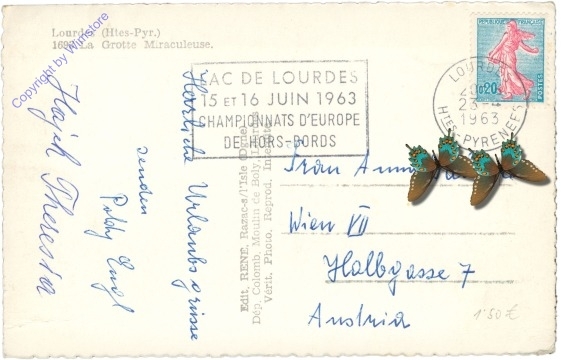 Lourdes (Htes-Pyr.)
La Grotte Miraculeuse.
Copyright by Wimstore
REPUBLIQUE FRANÇAISE
0,20
POSTES
LAC DE LOURDES
15 ET 16 JUIN 1963
CHAMPIONNATS D'EUROPE
DE HORS-BORDS
LOURDES
23-4
1963
HTES-PYRENEES
Herrliche Urlaubsgrüsse
senden
Theresia
Edit. RENE, Razac-s/l'Isle (Dgne)
Dép. Colomb, Moulin de Boly, Lourdes
Vérit. Photo. Reprod. Interdite
Frau Anna
Wien VII
Halbgasse 7
Austria
1'50 €